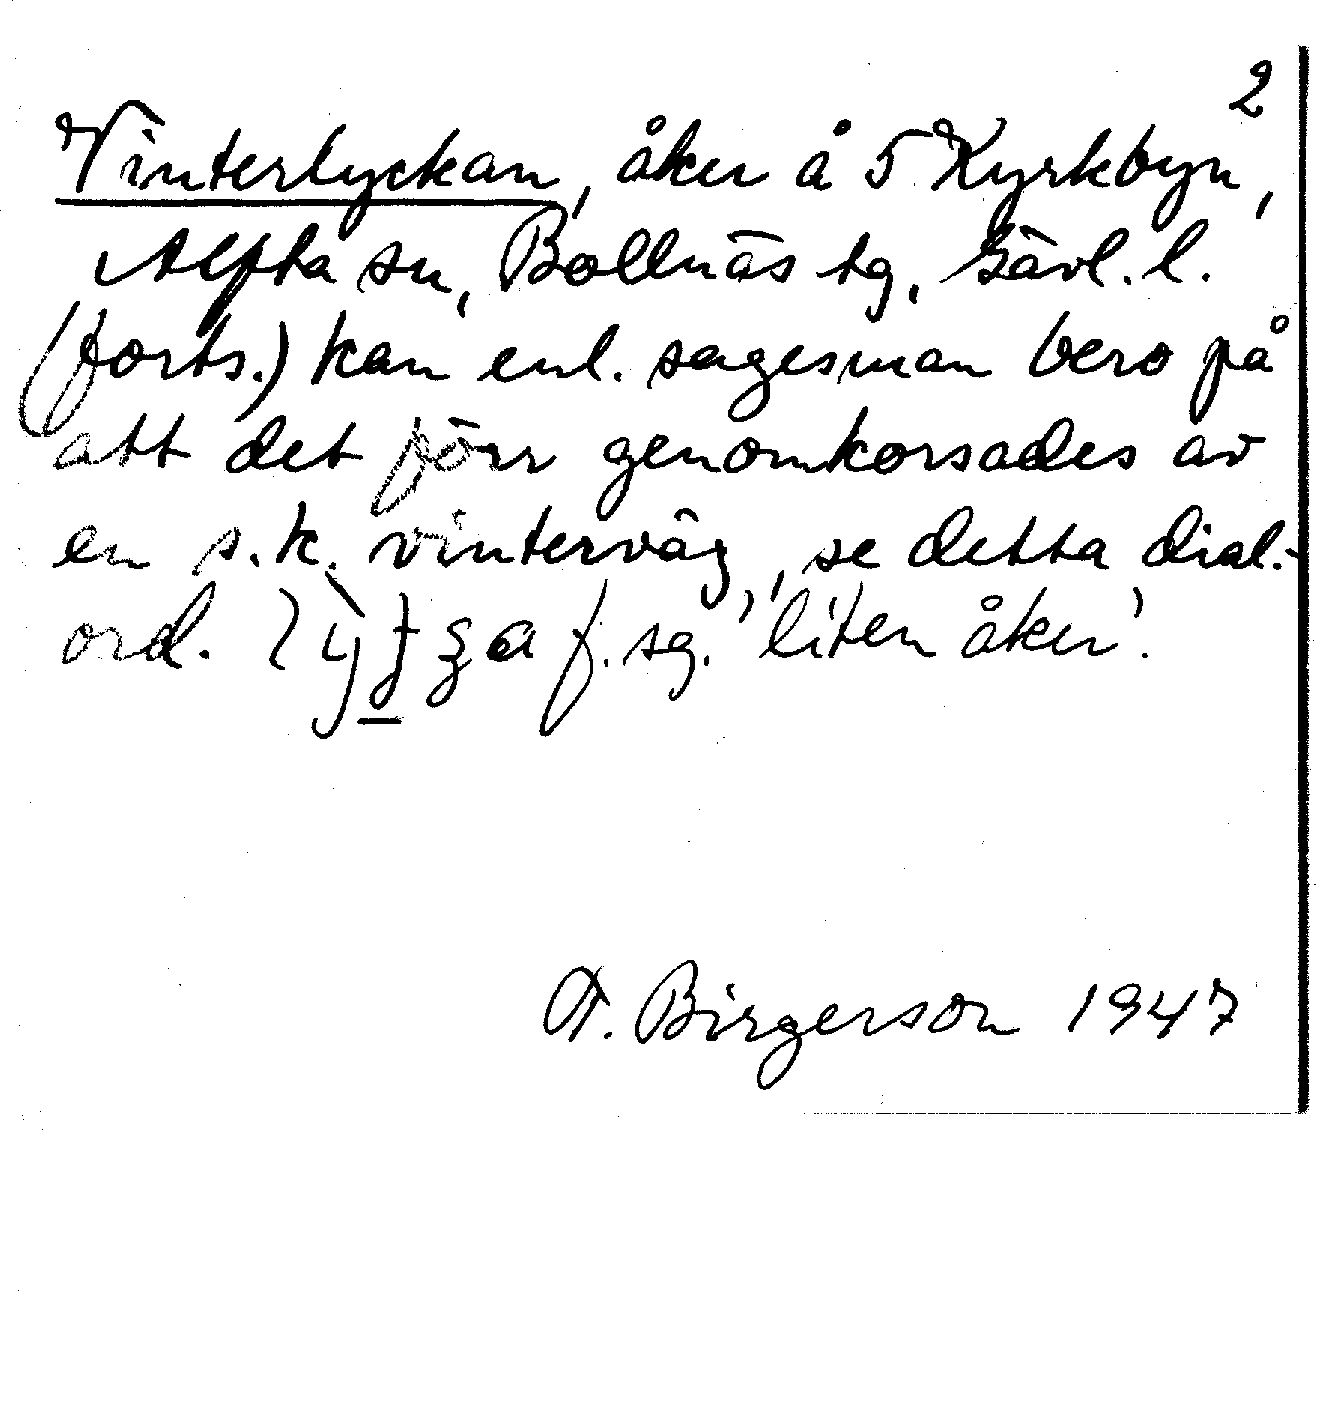 2
Vinterlyckan, åker å 5 Kyrkbyn,
Alfta sn, Bollnäs tg, Gävl. l.
(forts.) kan enl. sagesman bero på
att det förr genomkorsades av
en s.k. vinterväg, se detta dial.-
ord. f. sg. 'liten åker'.
F. Birgerson 1947